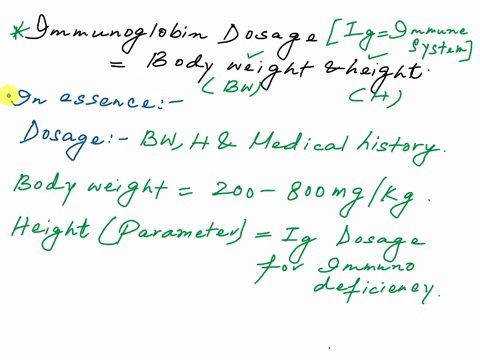 * Immunoglobin Dosage [Ig = Immune System]
= Body weight & height.
(BW) (H)
In essence:-
Dosage:- BW, H & Medical history.
Body weight = 200 - 800 mg/Kg.
Height (Parameter) = Ig Dosage
for Immuno
deficiency.